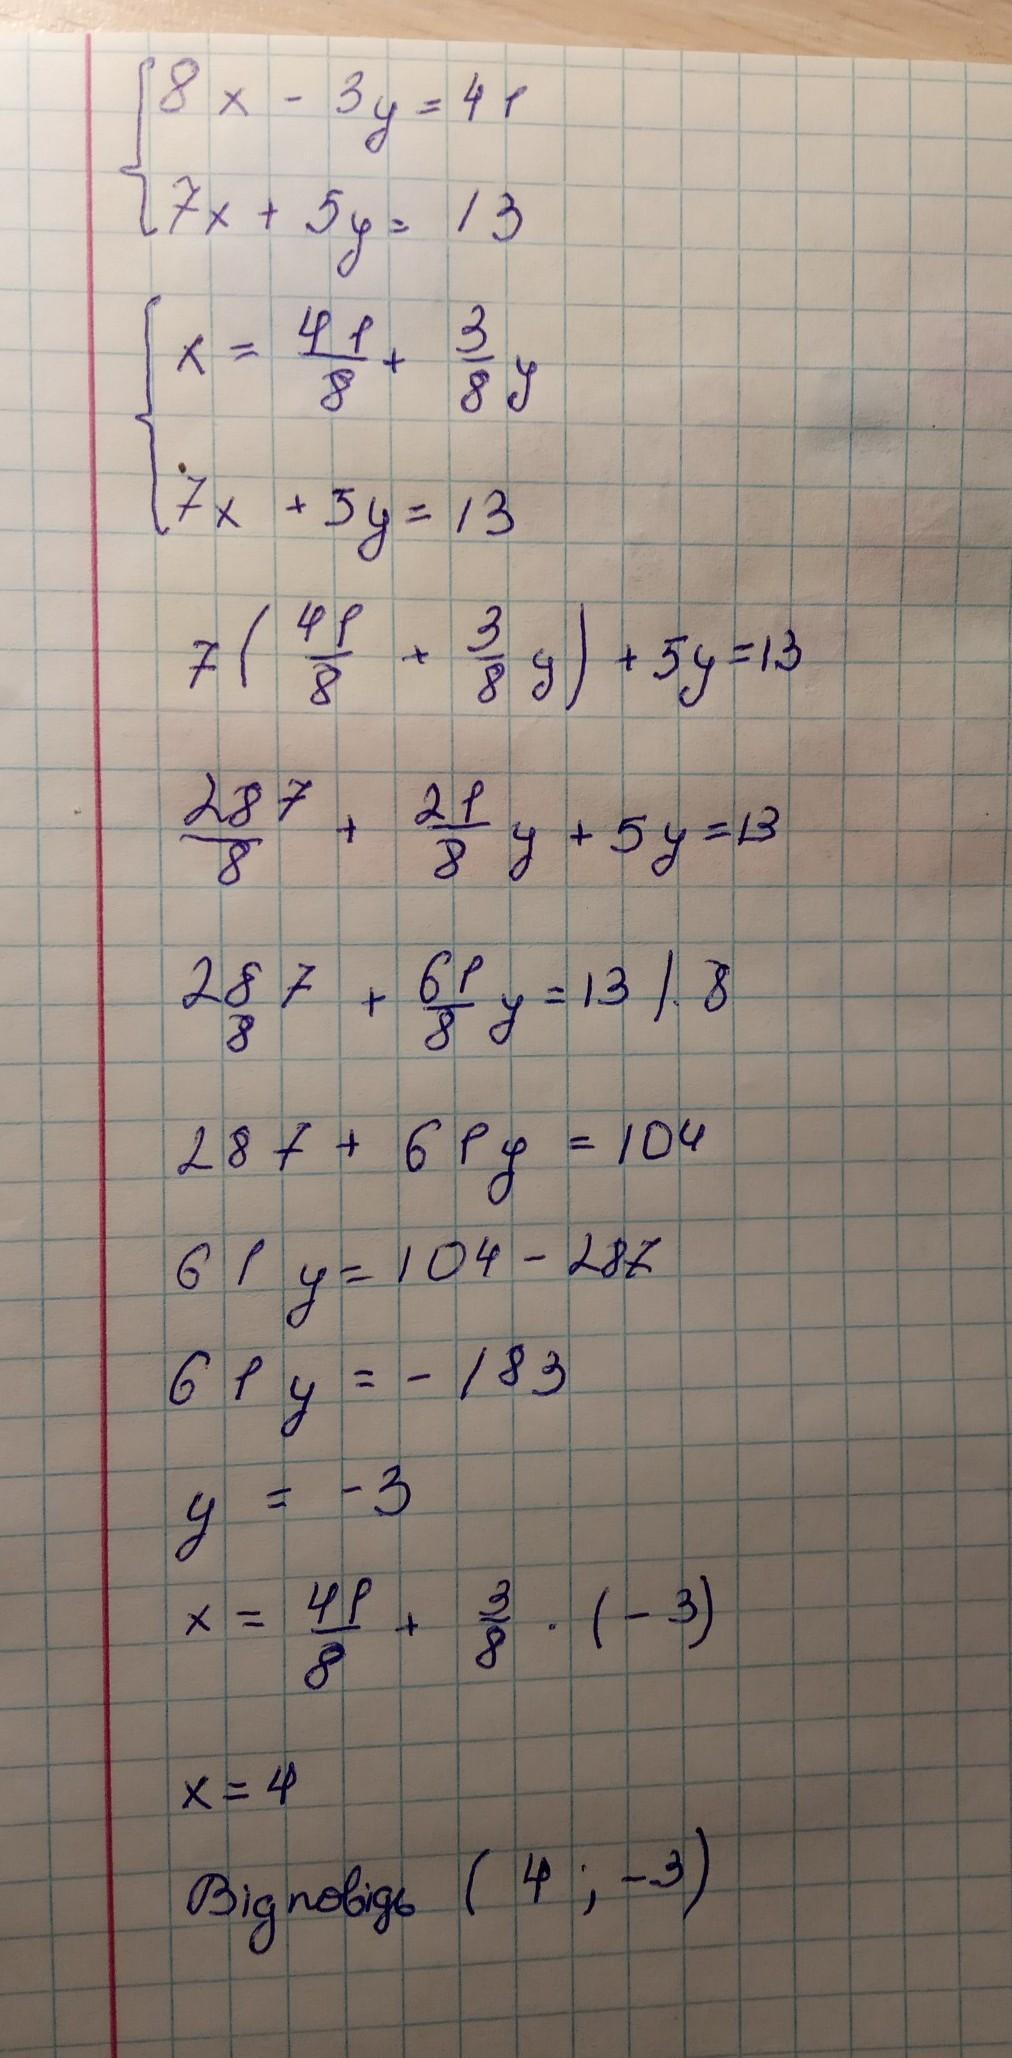 8x - 3y = 41
7x + 5y = 13
x = 41/8 + 3/8 y
7x + 5y = 13
7(41/8 + 3/8 y) + 5y = 13
287/8 + 21/8 y + 5y = 13
287/8 + 61/8 y = 13 | · 8
287 + 61y = 104
61y = 104 - 287
61y = - 183
y = -3
x = 41/8 + 3/8 · (-3)
x = 4
Відповідь (4 ; -3)